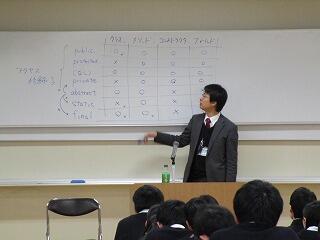 クラス メソッド コンストラクタ フィールド
public ○ ○ ○ ○
protected × ○ ○ ○
(なし) ○ ○ ○ ○
private × ○ ○ ○
アクセス
修飾子
abstract ○ ○ × ×
static × ○ × ○
final ○ ○ × ○